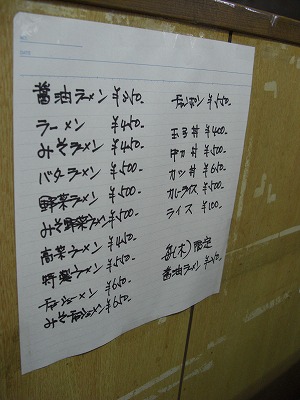 醤油ラーメン ¥350-
ラーメン ¥450-
みそラーメン ¥450-
バターラーメン ¥500-
野菜ラーメン ¥500-
みそ野菜ラーメン ¥500-
高菜ラーメン ¥450-
特製ラーメン ¥550-
チャーシューメン ¥650-
みそチャーシューメン ¥650-
チャンポン ¥550-
玉子丼 ¥400-
中カ丼 ¥500-
カツ丼 ¥650-
カレーライス ¥500-
ライス ¥100-
毎(木)限定
醤油ラーメン